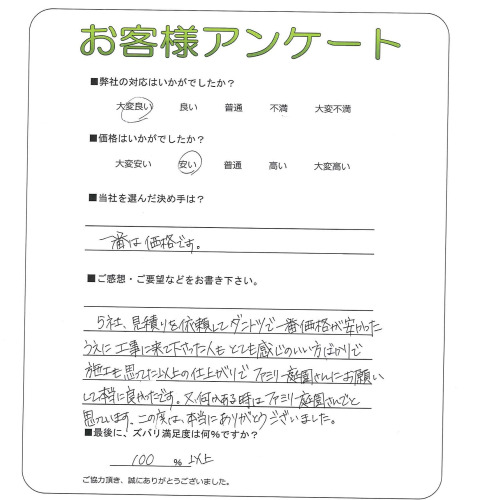 お客様アンケート
■弊社の対応はいかがでしたか？
大変良い 良い 普通 不満 大変不満
■価格はいかがでしたか？
大変安い 安い 普通 高い 大変高い
■当社を選んだ決め手は？
一番は価格です。
■ご感想・ご要望などをお書き下さい。
5社、見積りを依頼してダントツで一番価格が安かった
うえに工事に来て下さった人もとても感じのいい方ばかりで
施工も思ってた以上の仕上がりでファミリー庭園さんにお願い
して本当に良かったです。又、何かある時はファミリー庭園さんでと
思っています。この度は、本当にありがとうございました。
■最後に、ズバリ満足度は何%ですか？
100 % 以上
ご協力頂き、誠にありがとうございました。